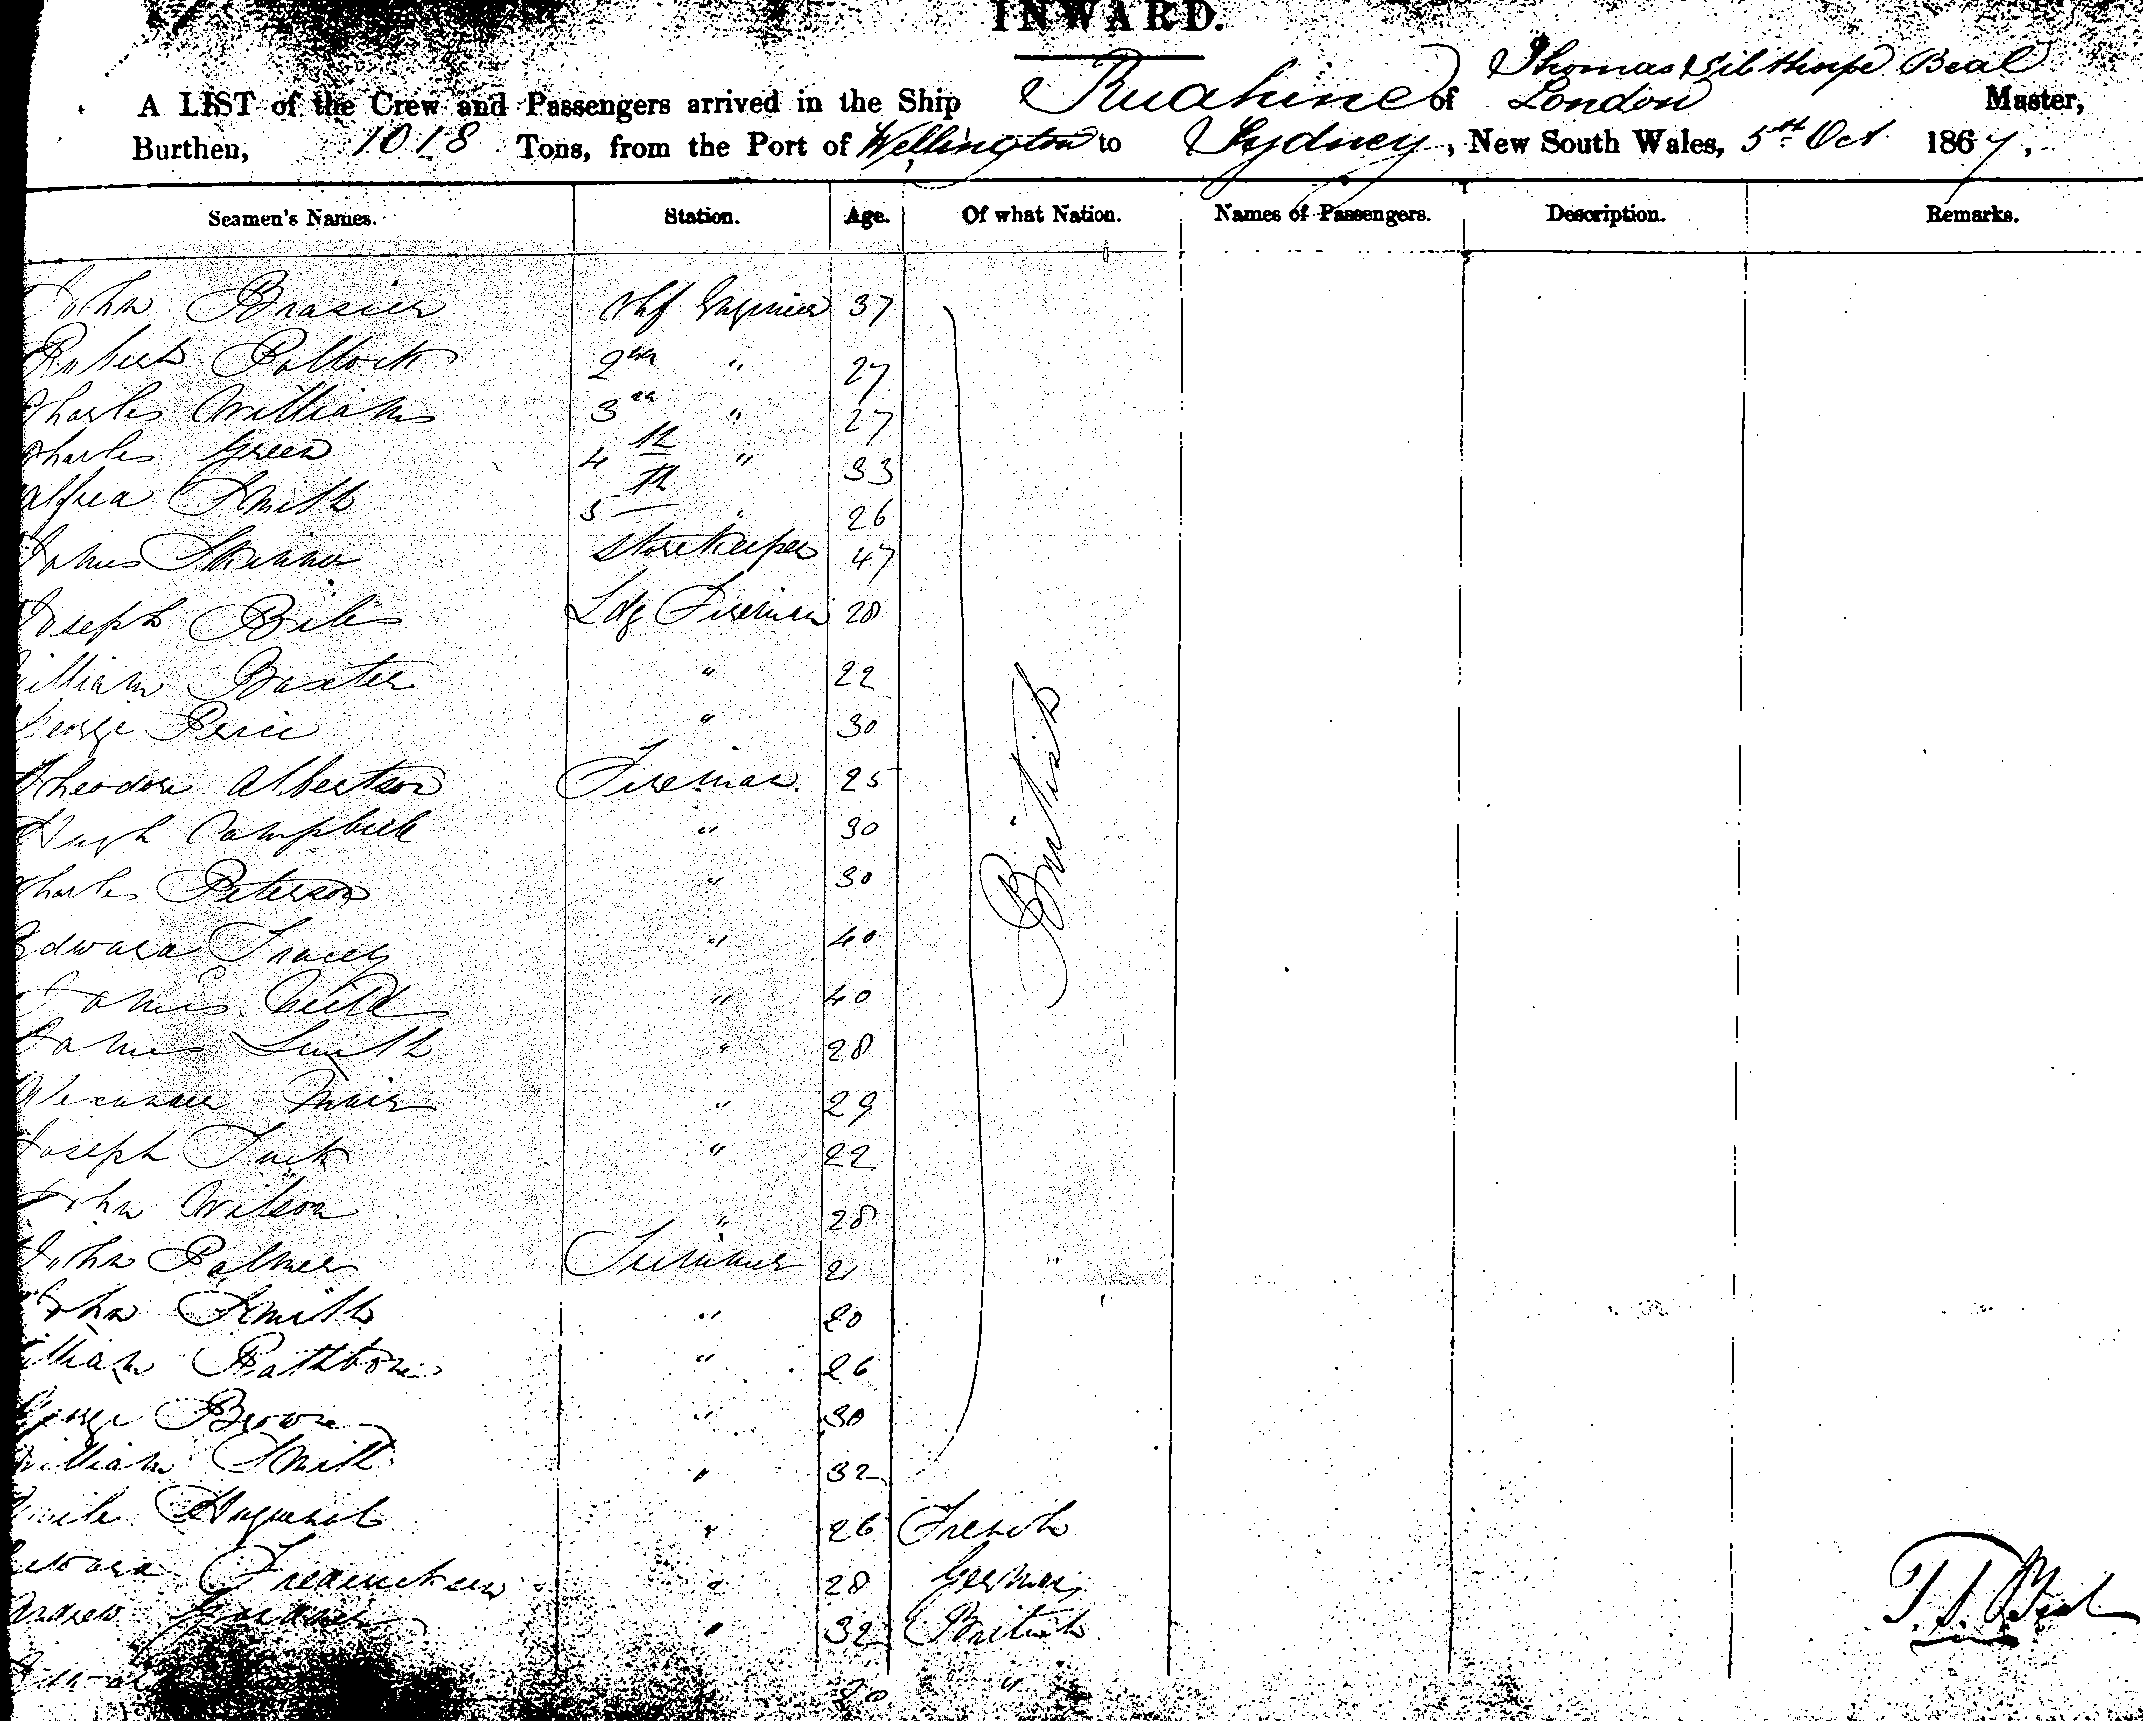 INWARD.
Thomas Sibthorpe Beal
A LIST of the Crew and Passengers arrived in the Ship Ruahine of London Master,
Burthen, 1018 Tons, from the Port of Wellington to Sydney, New South Wales, 5th Oct 1867.
Seamen's Names. Station. Age. Of what Nation. Names of Passengers. Description. Remarks.
John Brasier Chf Engineer 37
Robert Pollock 2nd " 27
Charles Williams 3rd " 27
Charles Green 4th " 33
Alfred Smith 5th " 26
James Skinner Storekeeper 47
Joseph Ldg Fireman 28
William Baxter " 22
George " 30
Theodore Albertson Fireman 25
Hugh Campbell " 30
Charles Peterson " 30
Edward Tracey " 40
James " 40
James Smith " 28
Alexander Muir " 29
Joseph Tuck " 22
John Wilson " 28
John Palmer Trimmer 21
John Smith " 20
William Rathbone " 26
George Brown " 30
William Smith " 32
British
" 26 French
Edward Fredericksen " 28 German
Andrew " 32 British
" 20 "
T. S. Beal